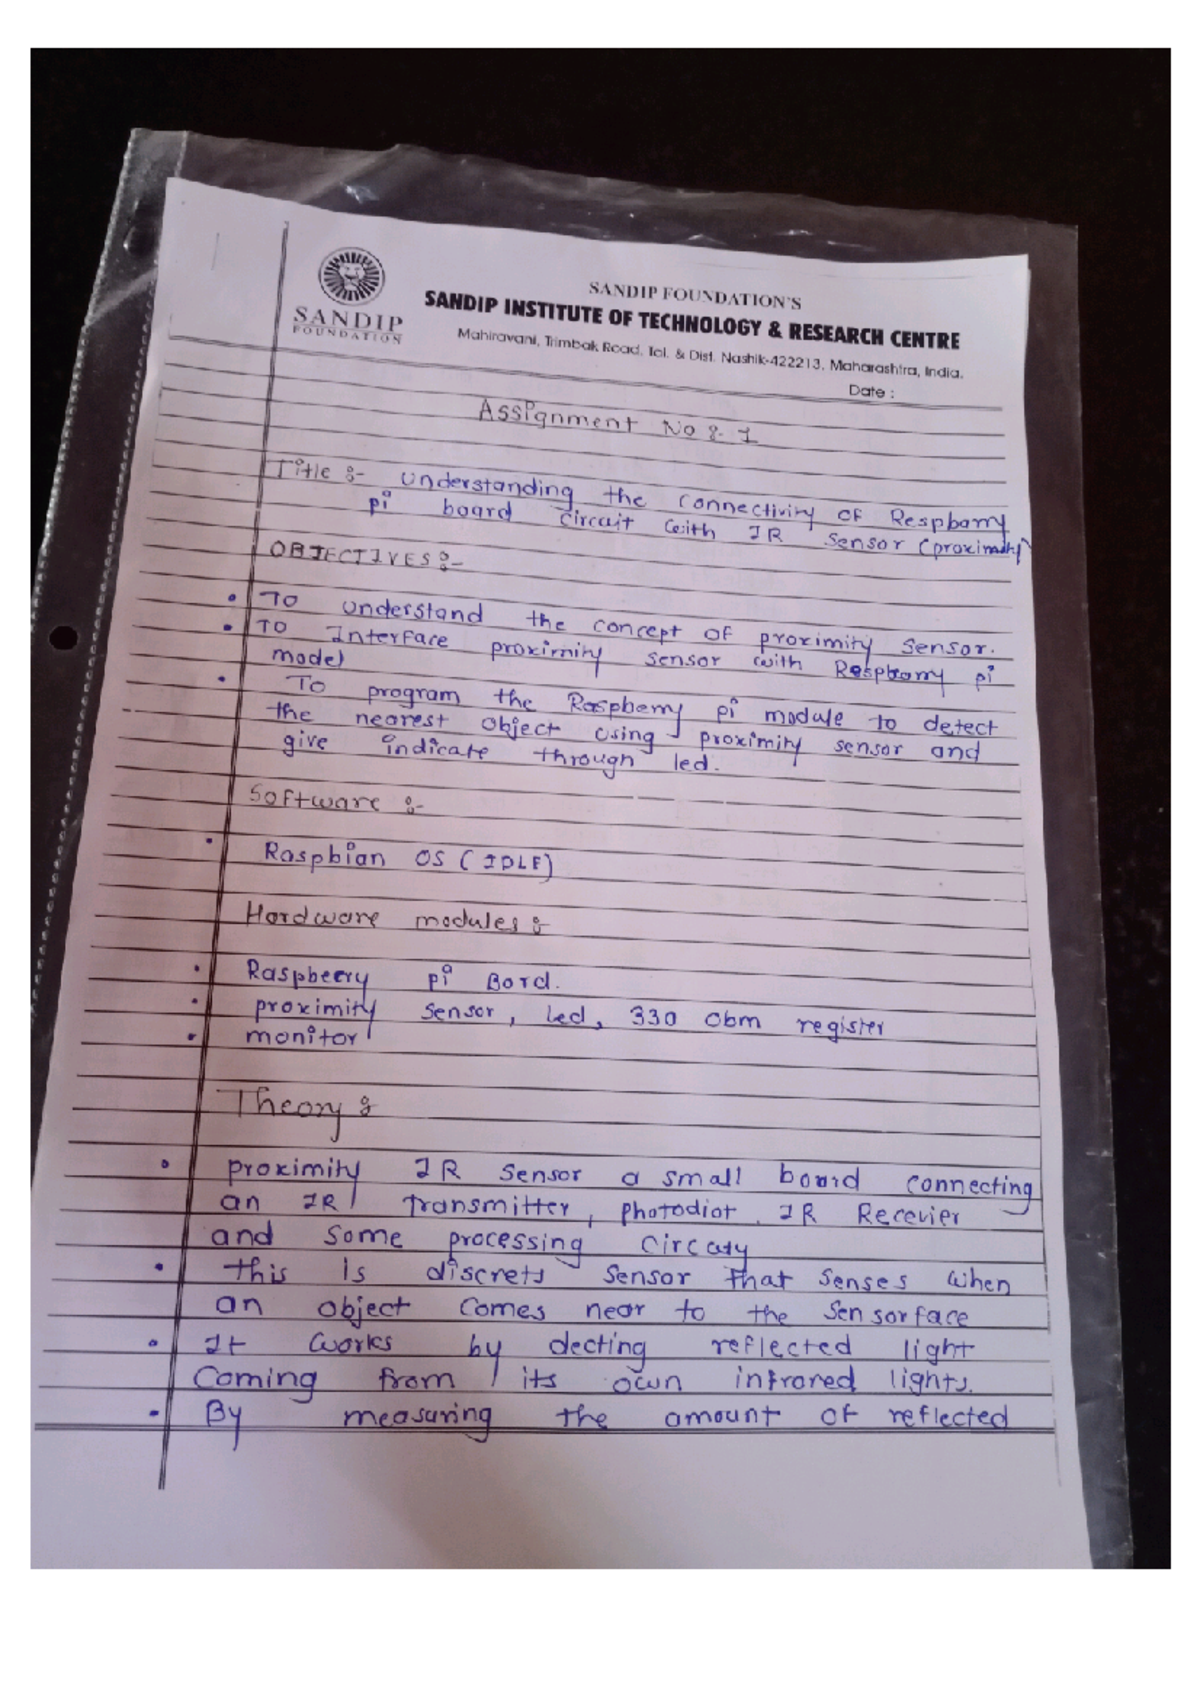 SANDIP
FOUNDATION
SANDIP FOUNDATION'S
SANDIP INSTITUTE OF TECHNOLOGY & RESEARCH CENTRE
Mahiravani, Trimbak Road, Tal. & Dist. Nashik-422213, Maharashtra, India.
Date :
Assignment No :- 1
Title :- Understanding the connectivity of Respberry
pi board circuit with IR Sensor (proximity)
OBJECTIVES :-
• To understand the concept of proximity sensor.
• To Interface proximity sensor with Respberry pi
model
• To program the Raspberry pi module to detect
the nearest object using proximity sensor and
give indicate through led.
Software :-
• Raspbian OS (IDLE)
Hardware modules :
• Raspbeery pi Bord.
• proximity sensor, led, 330 Obm register
• monitor
Theory :
• proximity IR sensor a small board connecting
an IR transmitter, photodiot IR Recevier
and some processing circuty
• this is discrets sensor that senses when
an object comes near to the sensorface
• It works by decting reflected light
Coming from its own infrared lights.
• By measuring the amount of reflected